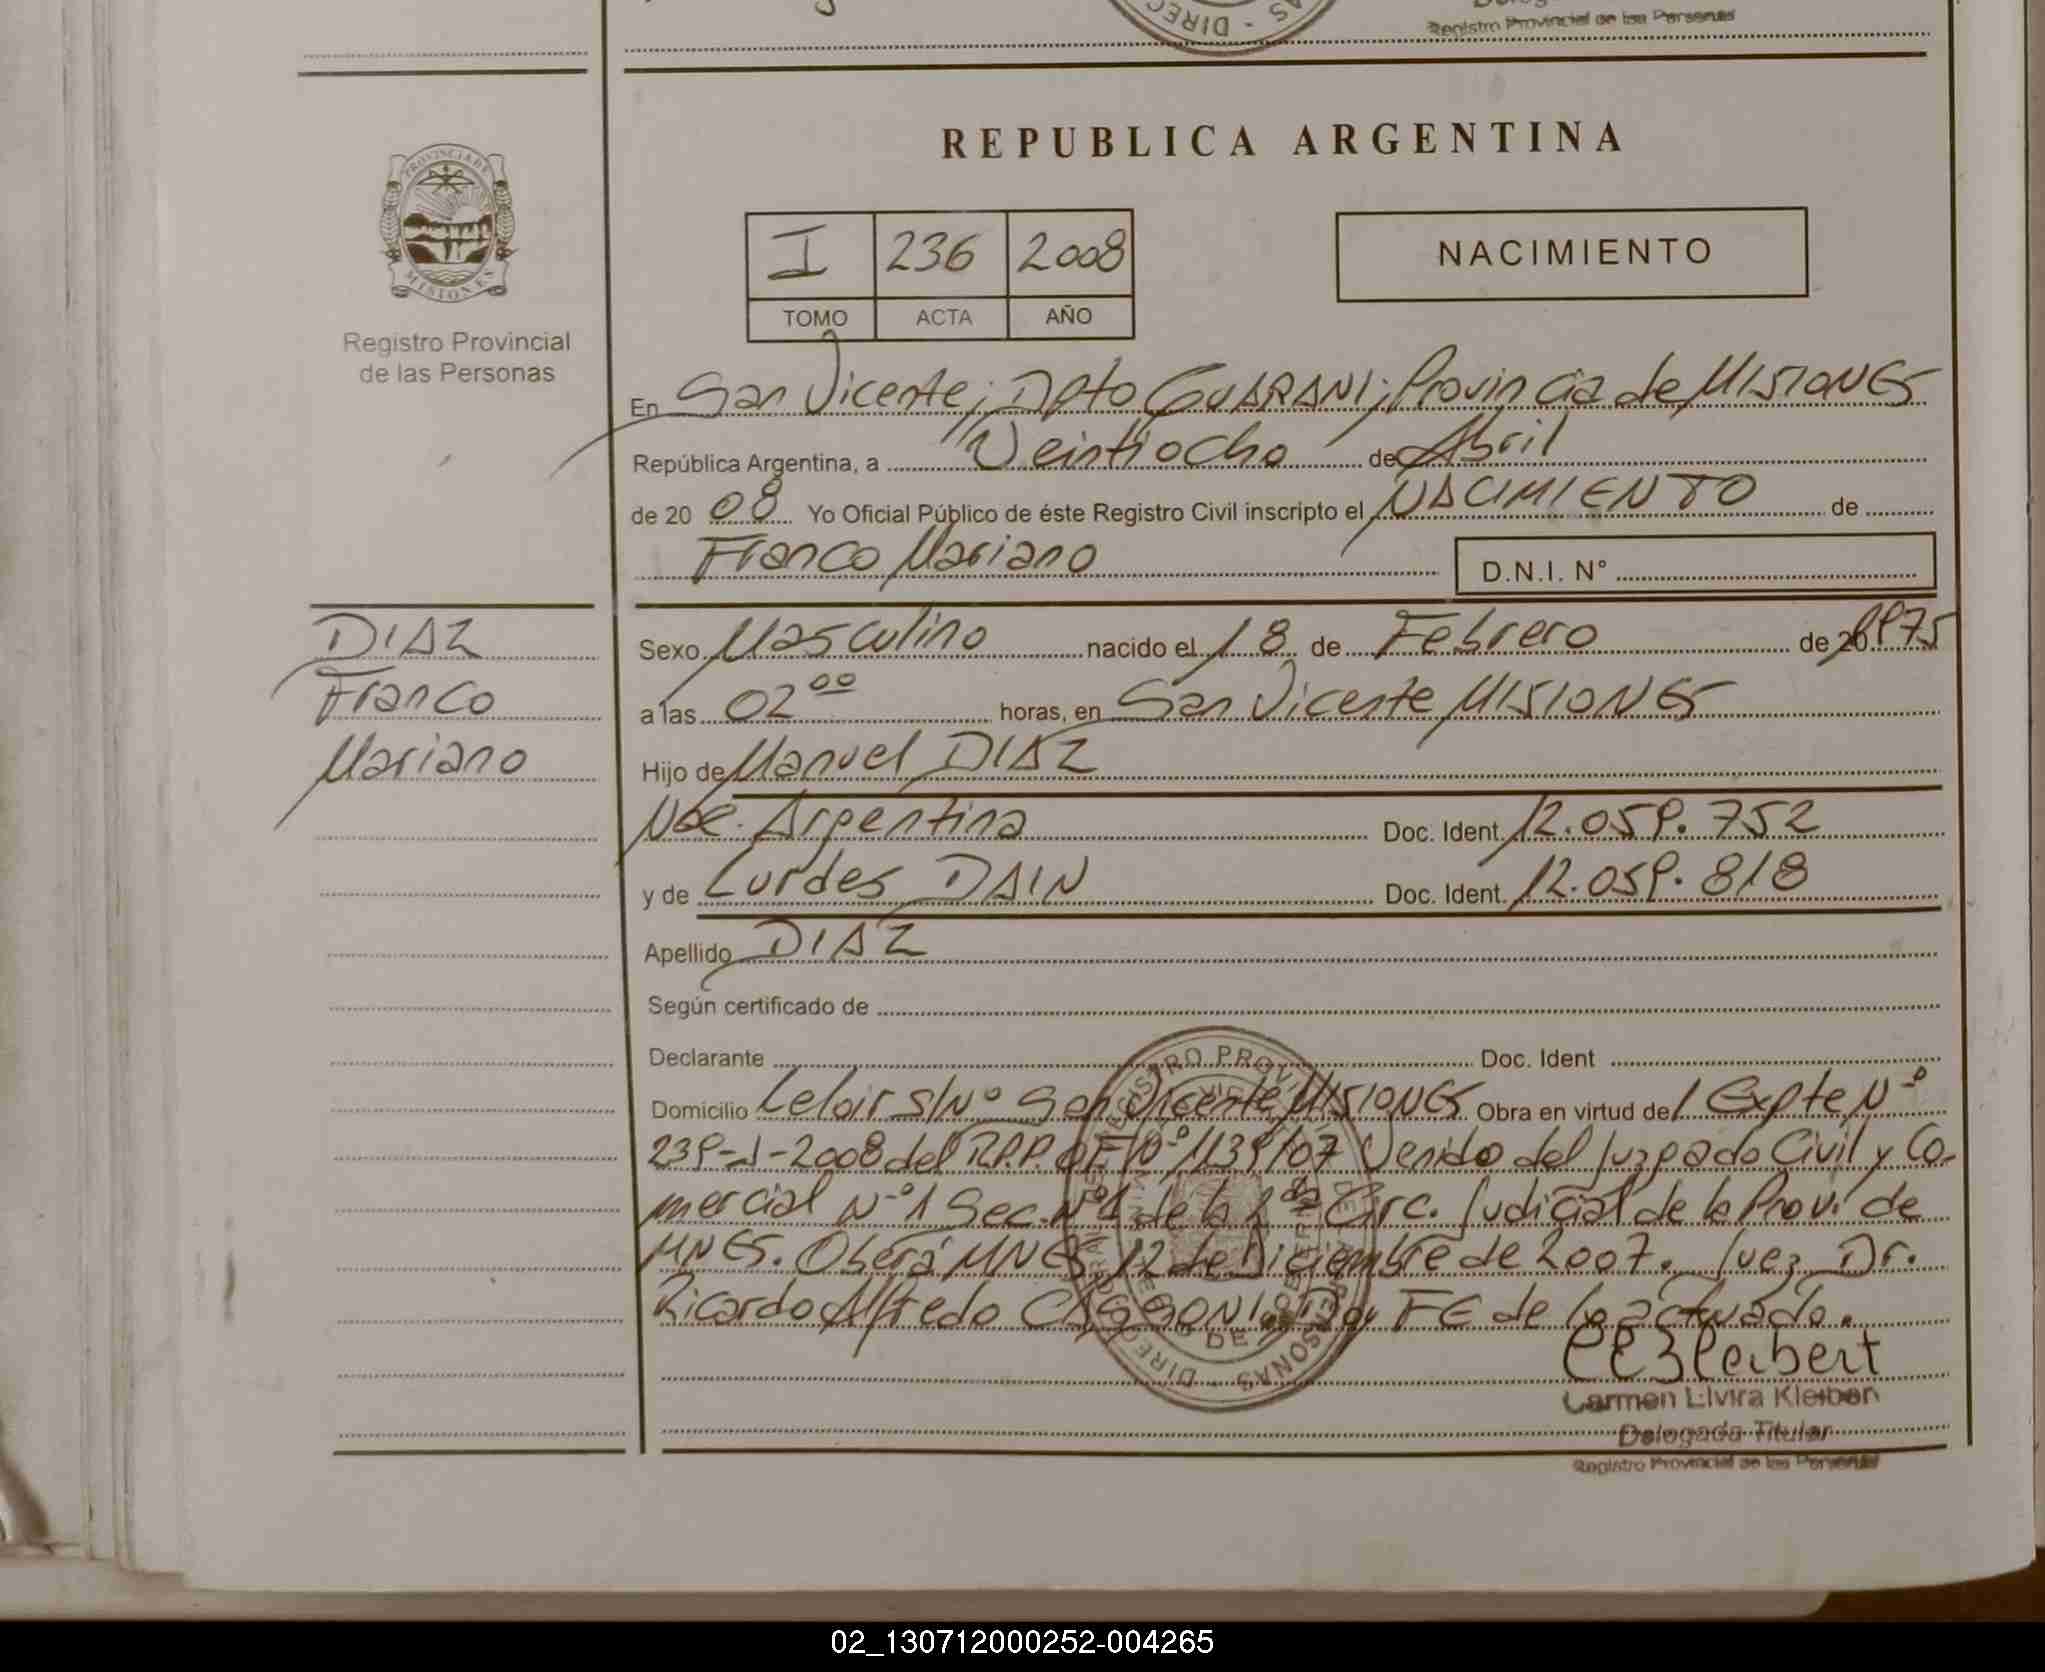 Registro Provincial de las Personas
REPUBLICA ARGENTINA
PROVINCIA DE MISIONES
Registro Provincial
de las Personas
I 236 2008
TOMO ACTA AÑO
NACIMIENTO
En San Vicente; Dpto GUARANI; Provincia de MISIONES
República Argentina, a Veintiocho de Abril
de 20 08 Yo Oficial Público de éste Registro Civil inscripto el NACIMIENTO de
Franco Mariano D.N.I. N°
DIAZ
Franco
Mariano
Sexo Masculino nacido el 18 de Febrero de 20 1975
a las 02 00 horas, en San Vicente MISIONES
Hijo de Manuel DIAZ
Nac. Argentina Doc. Ident. 12.059.752
y de Lurdes DAIN Doc. Ident. 12.059.818
Apellido DIAZ
Según certificado de
Declarante Doc. Ident
Domicilio Leloir S/N° San Vicente MISIONES Obra en virtud del Expte N°
239-J-2008 del R.P.P. OF N° 1139/07 Venido del Juzgado Civil y Co-
mercial N° 1 Sec. N° 1 de la 2da Circ. Judicial de la Prov. de
MNES. Oberá MNES 12 de Diciembre de 2007. Juez Dr.
Ricardo Alfredo CASSONI. Doy FE de lo actuado.
Carmen Elvira Kleibert
Delegada Titular
Registro Provincial de las Personas
02_130712000252-004265